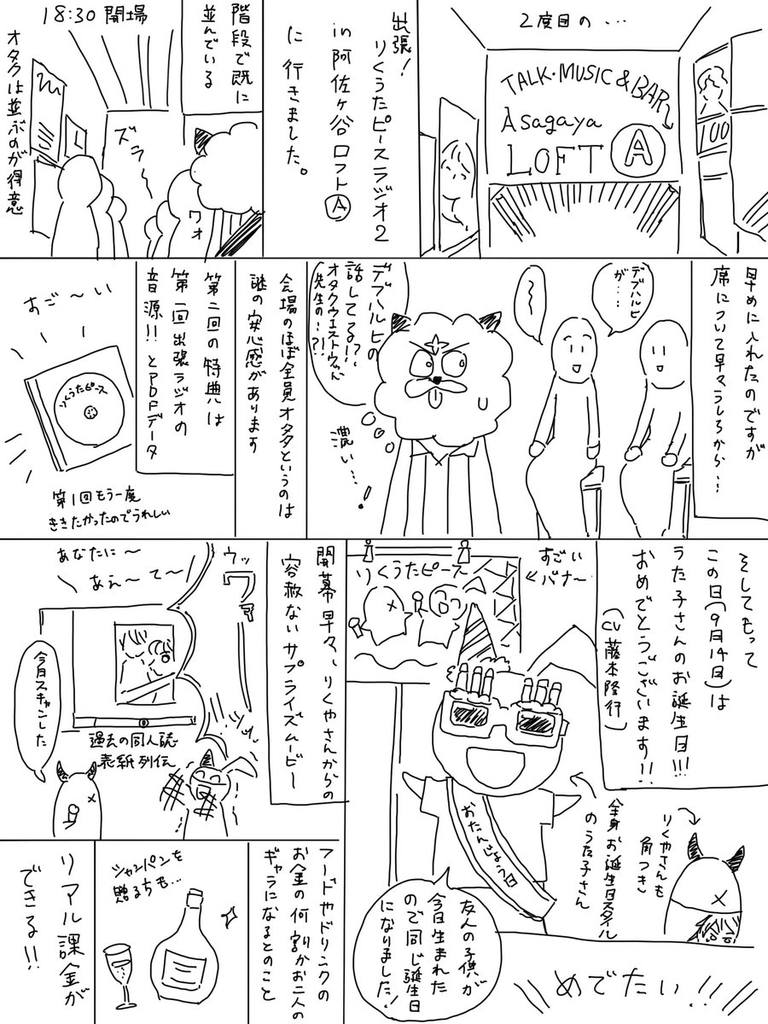 2度目の…
TALK・MUSIC&BAR
Asagaya
LOFT A
100
出張!
りくうたピースラジオ2
in 阿佐ヶ谷ロフトA
に行きました。
階段で既に
並んでいる
18:30 開場
ズラ〜
ワオ
オタクは並ぶのが得意
早めに入れたのですが
席について早々うしろから…
デブハルヒ
が…
デブハルヒの
話してる?!
オタクウエストウッドくん
先生の…?!!
濃い…!
会場のほぼ全員オタクというのは
謎の安心感があります
第二回の特典は
第一回出張ラジオの
音源!!とPDFデータ
すご〜い
りくうたピース
第1回もう一度
ききたかったのでうれしい
そしてもって
この日(9月14日)は
うた子さんのお誕生日!!!
おめでとうございます!!
(CV 藤本隆行)
すごい
バナー
りくうたピース
おたんじょう日
全身お誕生日スタイル
のうた子さん
りくやさんも
角つき
友人の子供が
今日生まれた
ので同じ誕生日
になりました!
めでたい!!!
開幕早々、りくやさんからの
容赦ないサプライズムービー
あなたに〜
あぇ〜て〜
ウッ
ワァ
過去の同人誌
表紙列伝
今日スキャンした
フードやドリンクの
お金の何割かお二人の
ギャラになるとのこと
シャンパンを
贈る方も…
リアル課金が
できる!!